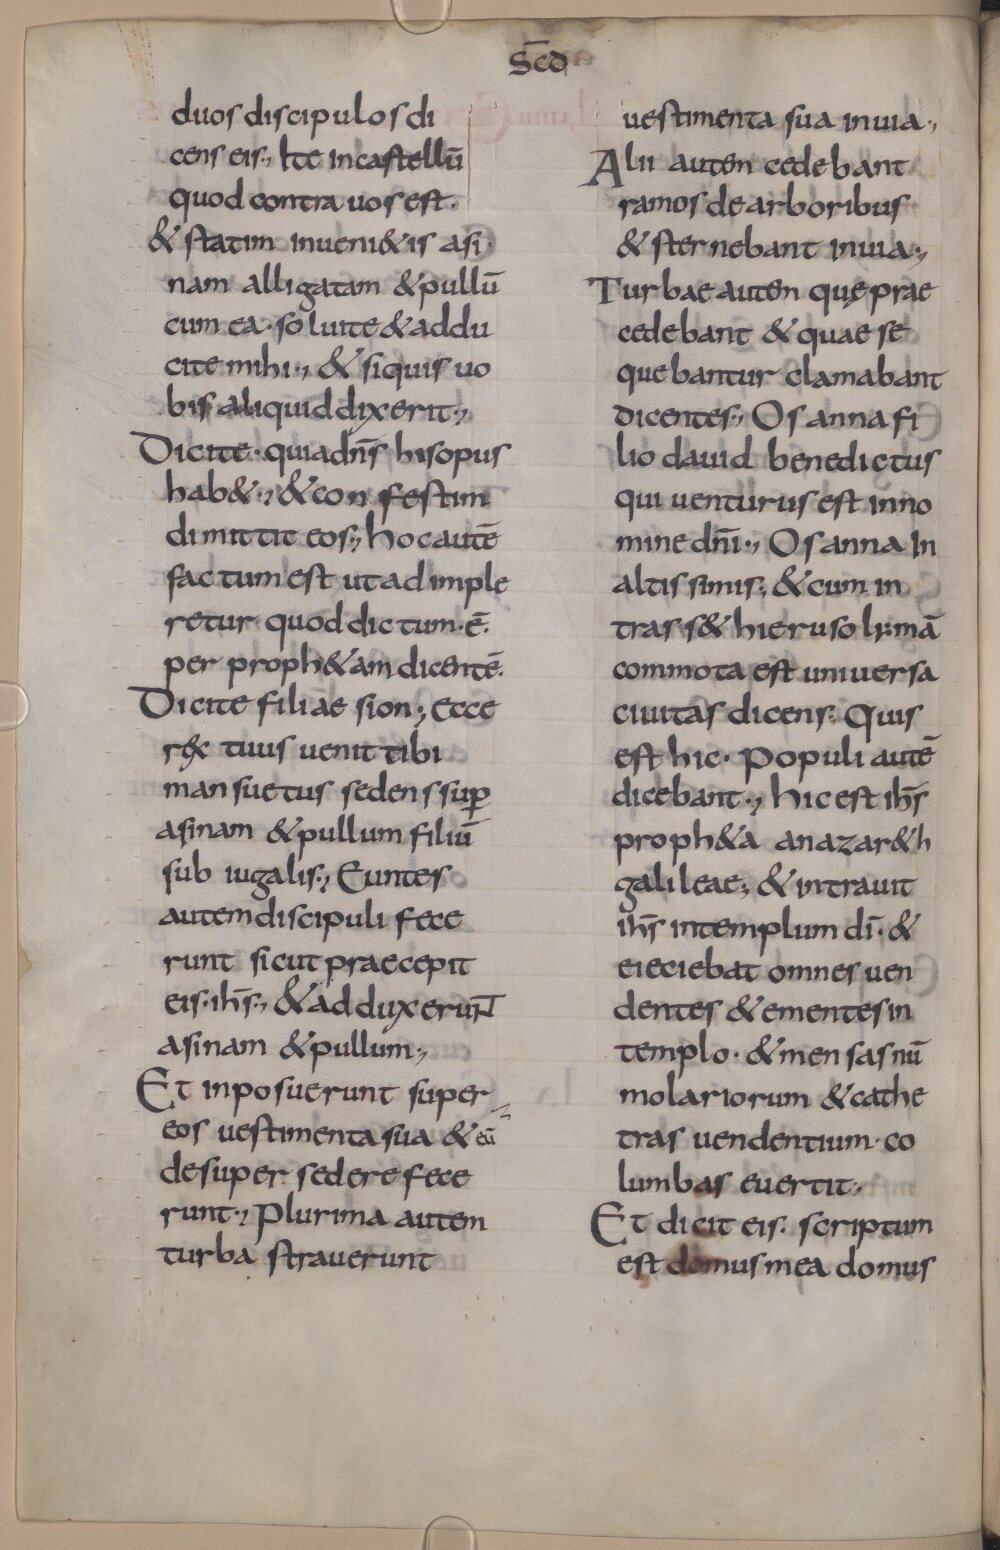 Scd
duos discipulos di
cens eis., Ite in castellū
quod contra uos est.
& statim inueni&is asi
nam alligatam & pullū
cum ea. soluite & addu
cite mihi., & siquis uo
bis aliquid dixerit.,
Dicite. quia dns̄ his opus
hab&., & confestim
dimittit eos., hoc autē
factum est ut adimple
retur quod dictum. ē.
per proph&am dicentē.
Dicite filiae sion., Ecce
rex tuus uenit tibi
mansuetus sedens sup
asinam & pullum filiū
sub iugalis., Euntes
autem discipuli fece
runt sicut praecepit
eis. ihs̄., & adduxerunt
asinam & pullum.,
Et inposuerunt super
eos uestimenta sua & eū
desuper sedere fece
runt., Plurima autem
turba strauerunt
uestimenta sua in uia.,
Alii autem cedebant
ramos de arboribus
& sternebant in uia.,
Turbae autem quę prae
cedebant & quae se
quebantur clamabant
dicentes., Osanna fi
lio dauid benedictus
qui uenturus est in no
mine dn̄i., Osanna In
altissimis., & cum in
trass& hierusolymā
commota est uniuersa
ciuitas dicens. Quis
est hic. Populi autē
dicebant., hic est ihs̄
proph&a a nazar&h
galileae., & intrauit
ihs̄ in templum dī. &
eieciebat omnes uen
dentes & ementes in
templo. & mensas nū
molariorum & cathe
tras uendentium. co
lumbas euertit.,
Et dicit eis. scriptum
est domus mea domus